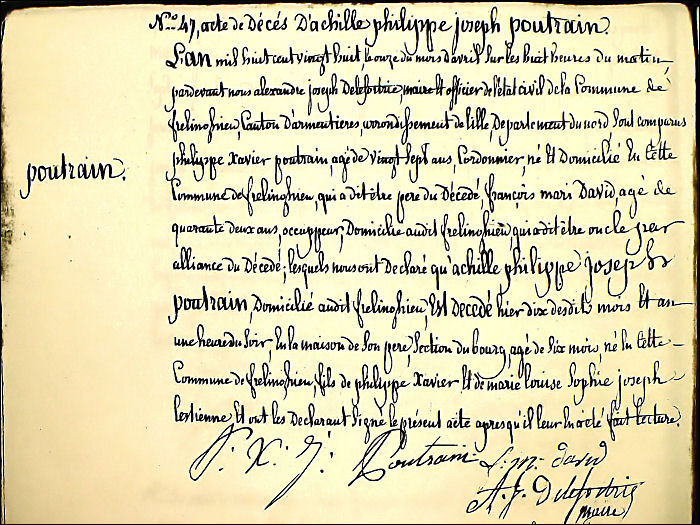 N.ro 47, acte de Décés D'achille philippe joseph poutrain.
L'an mil huit cent vingt huit, le onze du mois d'avril sur les huit heures du matin
pardevant nous alexandre joseph Delefortrie, maire et officier de l'état civil de la Commune de
frelinghien, Canton D'armentieres, arrondissement de lille Departement du nord, sont comparus
philippe Xavier poutrain, agé de vingt sept ans, Cordonnier, né et Domicilié En Cette
poutrain.
Commune de frelinghien, qui a dit être pere du Décedé, françois mari David, agé de
quarante deux ans, occuppeur, Domicilié audit frelinghien, qui a dit être oncle par
alliance du Décedé; lesquels nous ont Declaré qu'achille philippe joseph
poutrain, Domicilié audit frelinghien, Est Decedé hier dix desdits mois Et an
une heure du soir, En la maison de son pere, section du bourg, agé de six mois, né En Cette
Commune de frelinghien, fils de philippe Xavier Et de marie louise Sophie joseph
lestienne Et ont les Declarant signé le présent acte apres qu'il leur En a été fait lecture.
P. X. J. Poutrain f. m. david
A. J. Delefortrie
maire